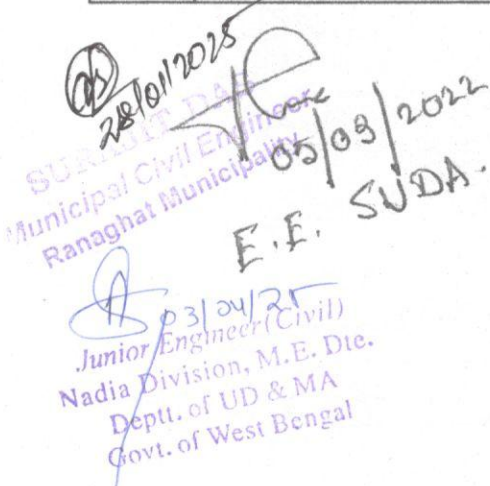 28/01/2025
SURAJIT DAS
Municipal Civil Engineer
Ranaghat Municipality
05/03/2022
E.E. SUDA.
03/04/25
Junior Engineer (Civil)
Nadia Division, M.E. Dte.
Deptt. of UD & MA
Govt. of West Bengal